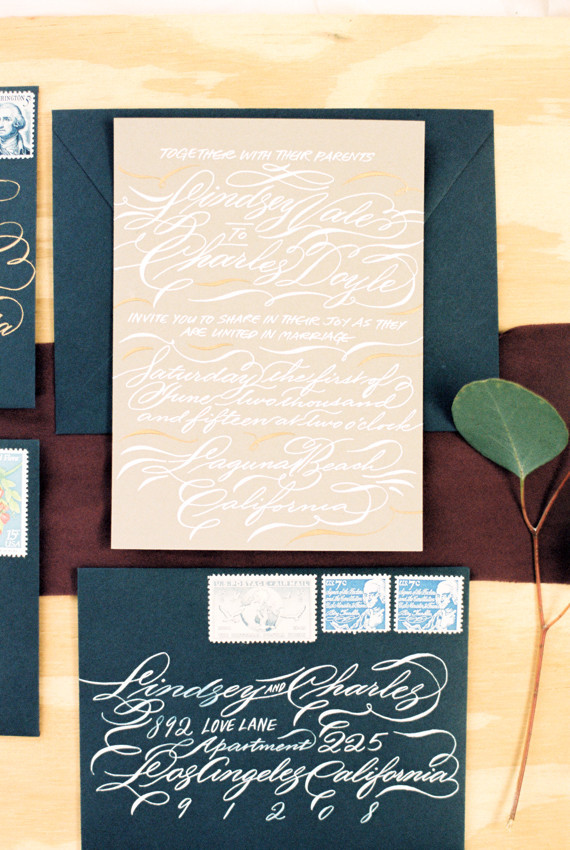 TOGETHER WITH THEIR PARENTS
Lindsey Vale
TO
Charles Doyle
INVITE YOU TO SHARE IN THEIR JOY AS THEY
ARE UNITED IN MARRIAGE
Saturday the first of
June two thousand
and fifteen at two o'clock
Laguna Beach
California
7c
7c
Lindsey AND Charles
892 LOVE LANE
Apartment 225
Los Angeles California
9 1 2 0 8
15c
USA